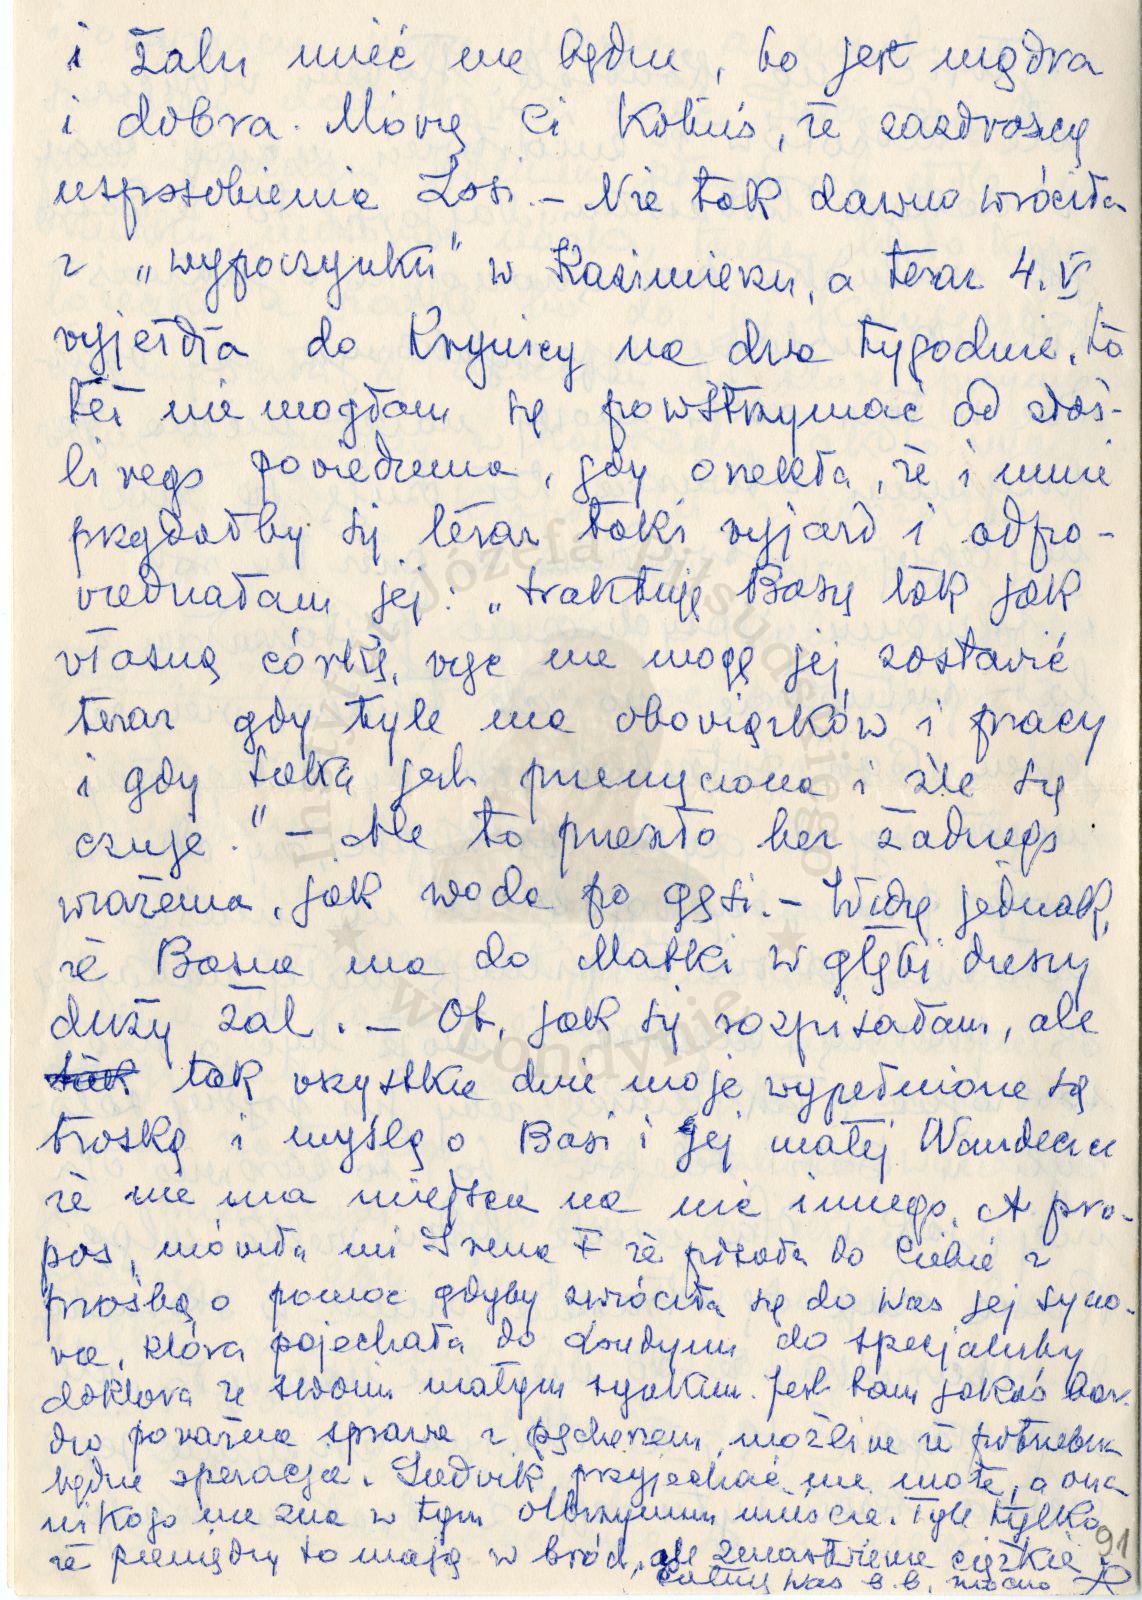 i żalu mieć nie będzie, bo jest mądra
i dobra. Mówię Ci Kotuś, że zazdroszczę
usposobienia Zosi. – Nie tak dawno wróciła
z „wypoczynku" w Kazimierzu, a teraz 4.V
wyjeżdża do Krynicy na dwa tygodnie, to
też nie mogłam się powstrzymać od złoś-
liwego powiedzenia, gdy orzekła, że i mnie
przydałby się teraz taki wyjazd i odpo-
wiedziałam jej: „traktuję Basię tak jak
własną córkę, więc nie mogę jej zostawić
teraz gdy tyle ma obowiązków i pracy
i gdy taka jest przemęczona i źle się
czuje." – Ale to przeszło bez żadnego
wrażenia, jak woda po gęsi. – Widzę jednak,
że Basia ma do Matki w głębi duszy
duży żal. – Ot, jak się rozpisałam, ale
tak wszystkie dnie moje wypełnione są
troską i myślą o Basi i jej małej Wandeczce
że nie ma miejsca na nic innego. A pro-
pos, mówiła mi Irena F że pisała do Ciebie z
prośbą o pomoc gdyby zwróciła się do Was jej syno-
wa, która pojechała do Londynu do specjalisty
doktora ze swoim małym synkiem. Jest tam jakaś bar-
dzo poważna sprawa z pęcherzem, możliwe że potrzebna
będzie operacja. Ludwik przyjechać nie może, a ona
nikogo nie zna w tym olbrzymim mieście. Tyle tylko
że pieniędzy to mają w bród, ale zmartwienie ciężkie
Całuję Was b. b. mocno
91
Instytut Józefa Piłsudskiego
w Londynie